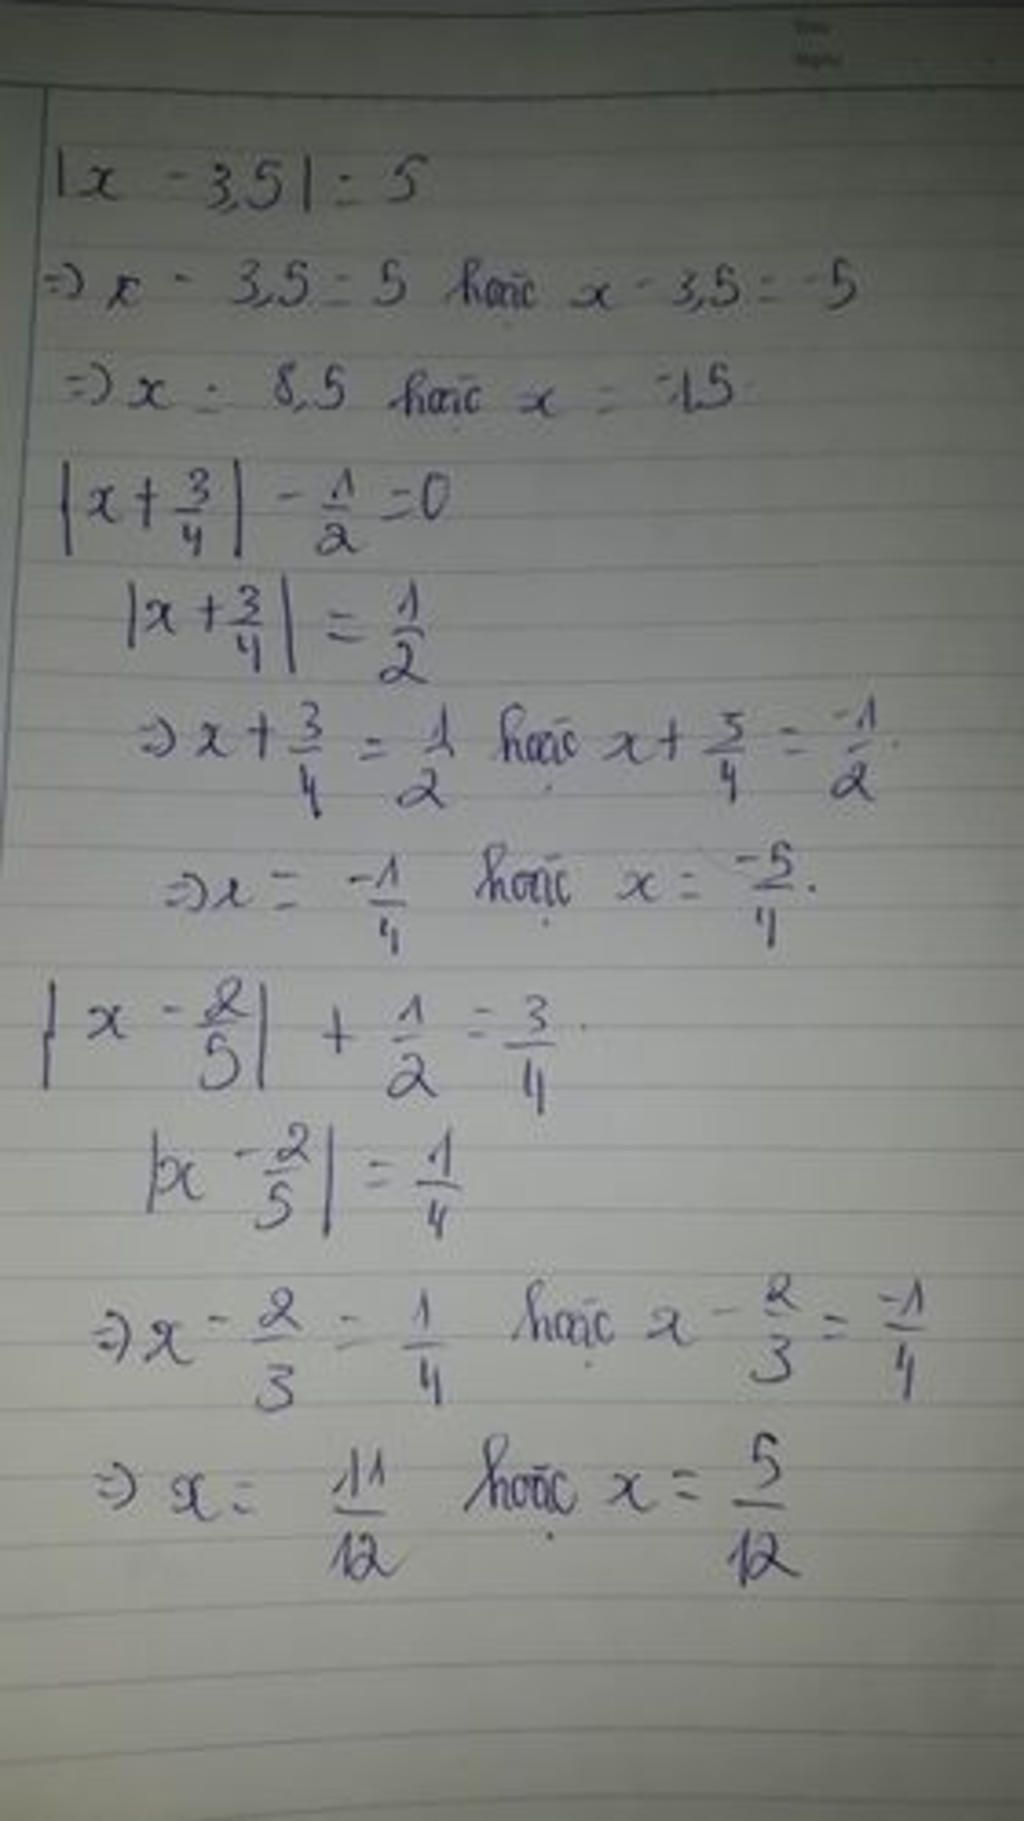 |x - 3,5| = 5
=> x - 3,5 = 5 hoặc x - 3,5 = -5
=> x = 8,5 hoặc x = -1,5
|x + 3/4| - 1/2 = 0
|x + 3/4| = 1/2
=> x + 3/4 = 1/2 hoặc x + 3/4 = -1/2.
=> x = -1/4 hoặc x = -5/4.
|x - 2/5| + 1/2 = 3/4
|x - 2/5| = 1/4
=> x - 2/3 = 1/4 hoặc x - 2/3 = -1/4
=> x = 11/12 hoặc x = 5/12